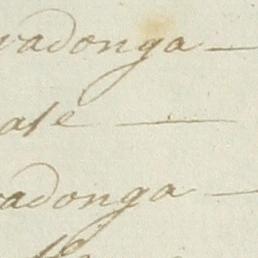 vadonga —
ase —
adonga —